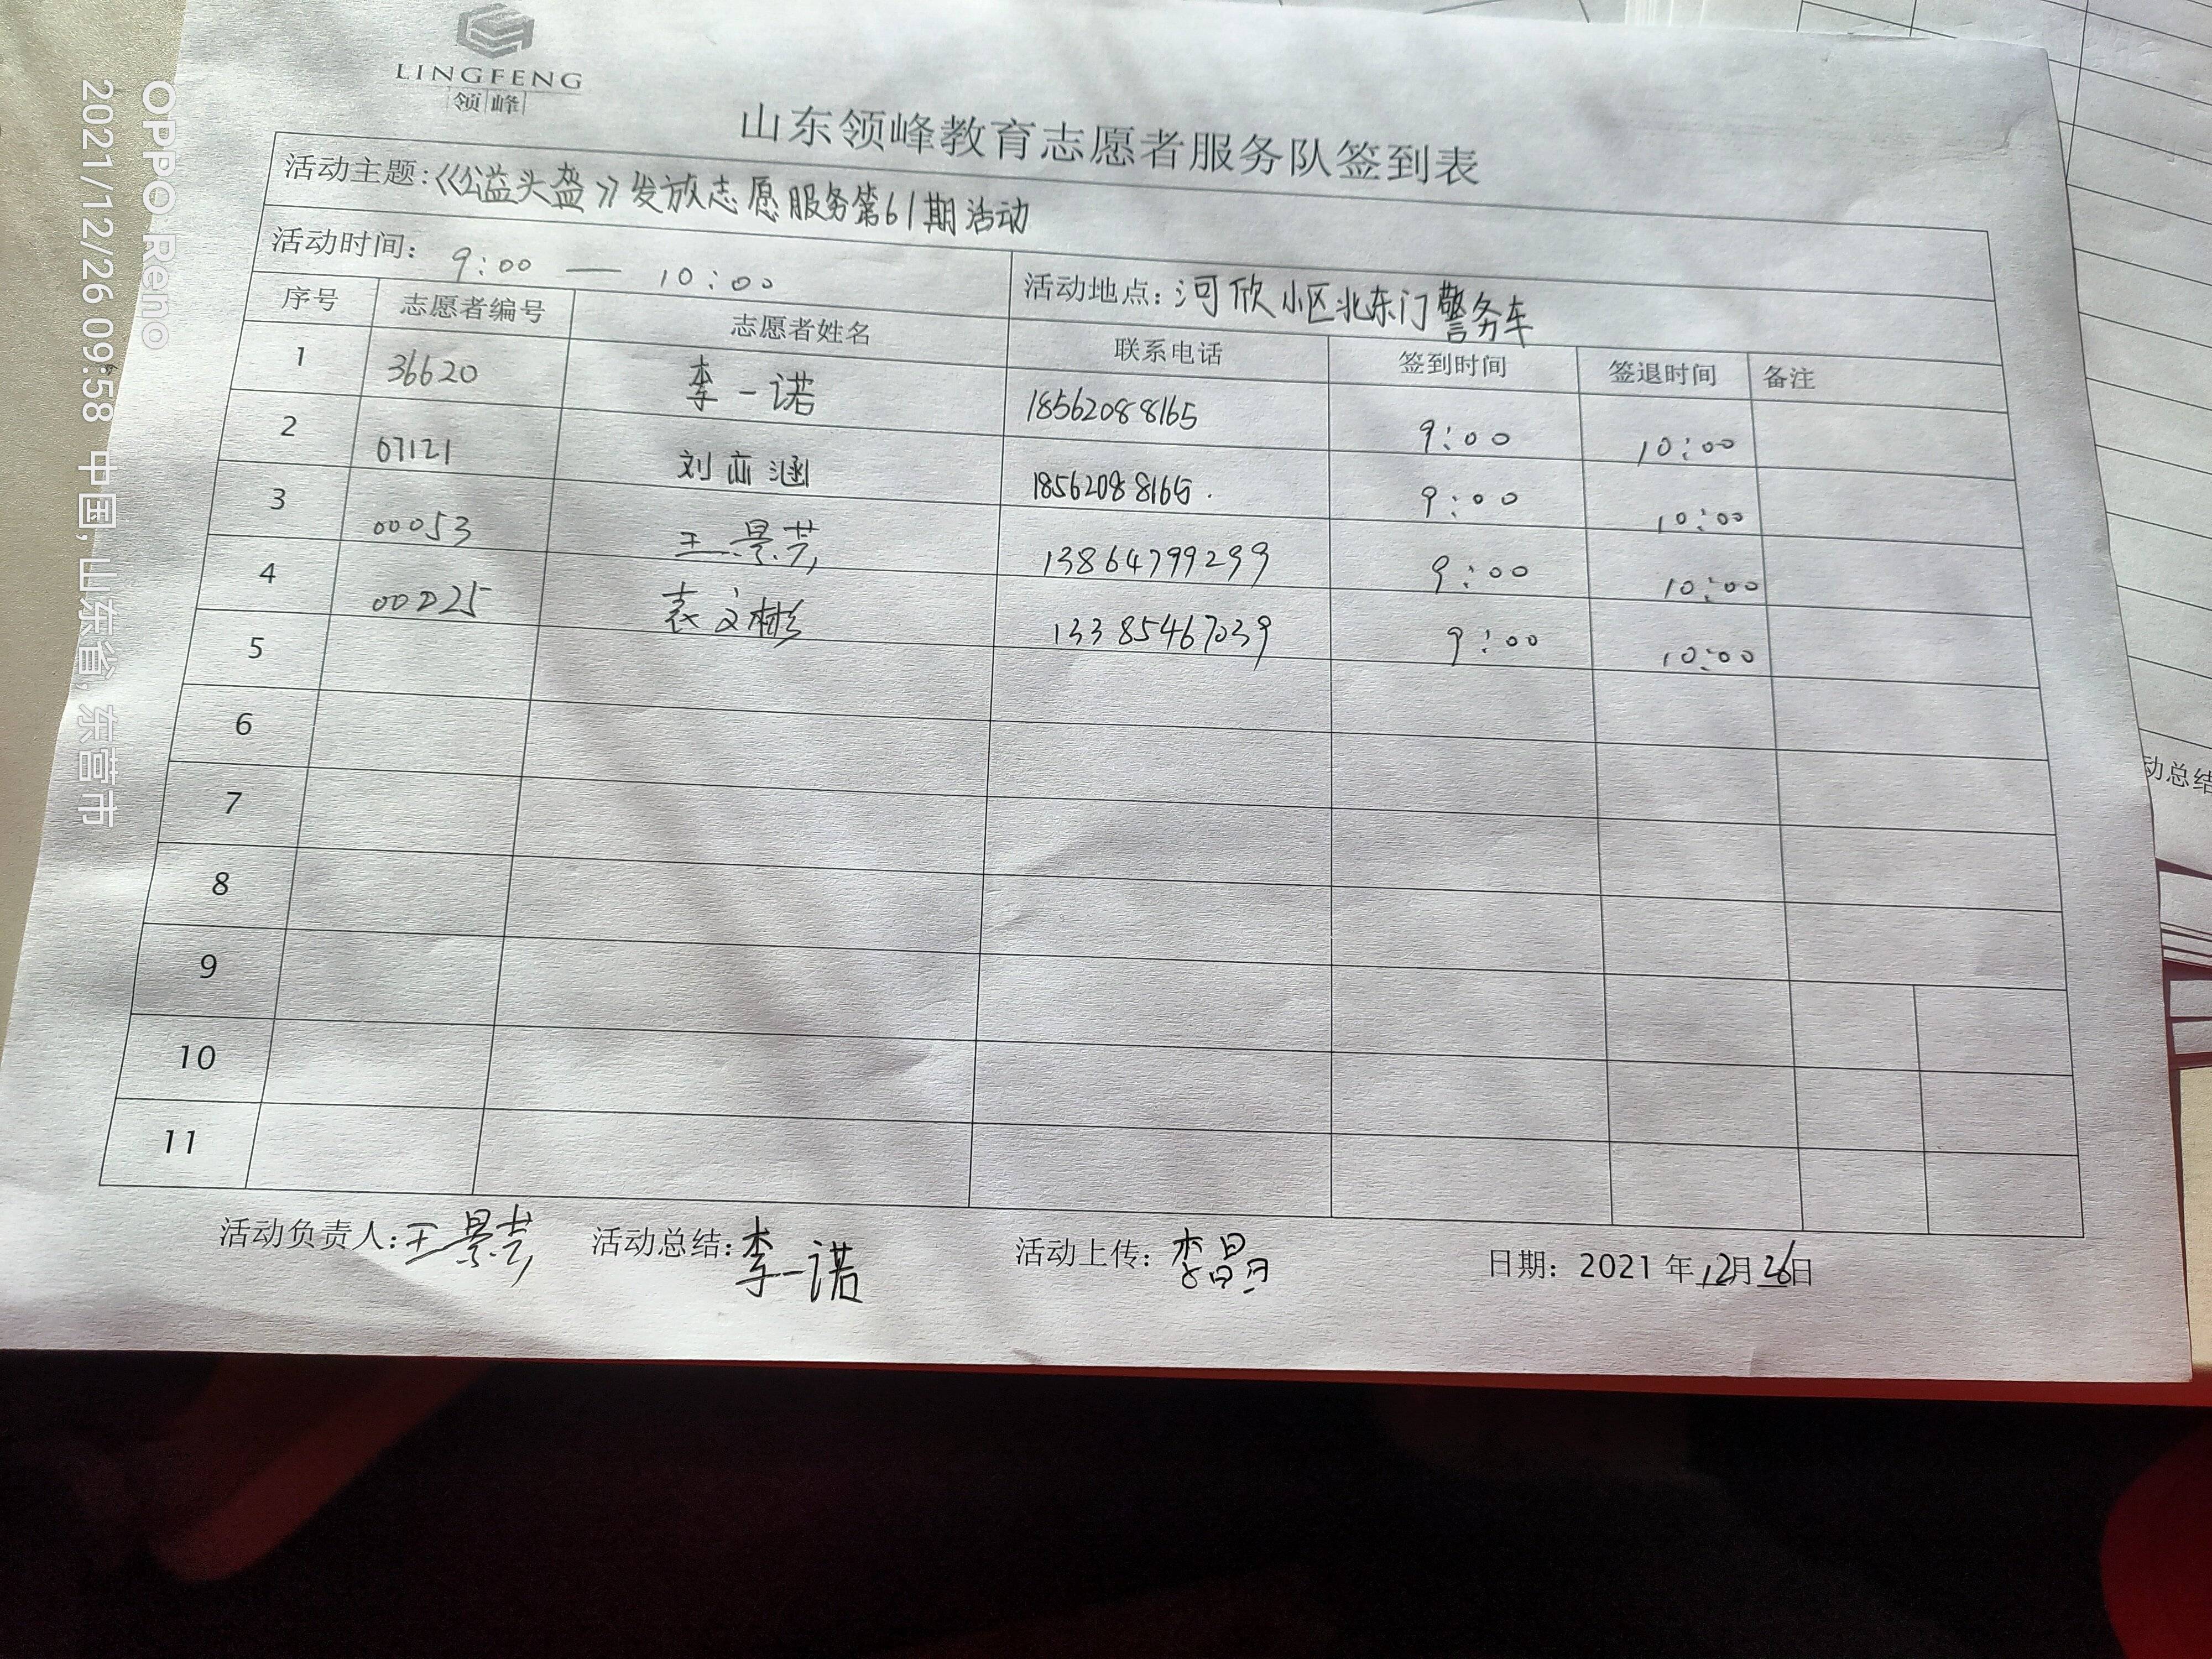 LINGFENG
领峰
山东领峰教育志愿者服务队签到表
活动主题:《公益头盔》发放志愿服务第61期活动
活动时间: 9:00 — 10:00 活动地点: 河欣小区北东门警务车
序号 志愿者编号 志愿者姓名 联系电话 签到时间 签退时间 备注
1 36620 李一诺 18562088165 9:00 10:00
2 07121 刘亦涵 18562088165. 9:00 10:00
3 00053 王景芸 13864799299 9:00 10:00
4 00025 袁文彬 13385467039 9:00 10:00
5
6
7
8
9
10
11
活动负责人: 王景芸 活动总结: 李一诺 活动上传: 日期: 2021年12月26日
动总结
OPPO Reno
2021/12/26 09:58 中国,山东省,东营市